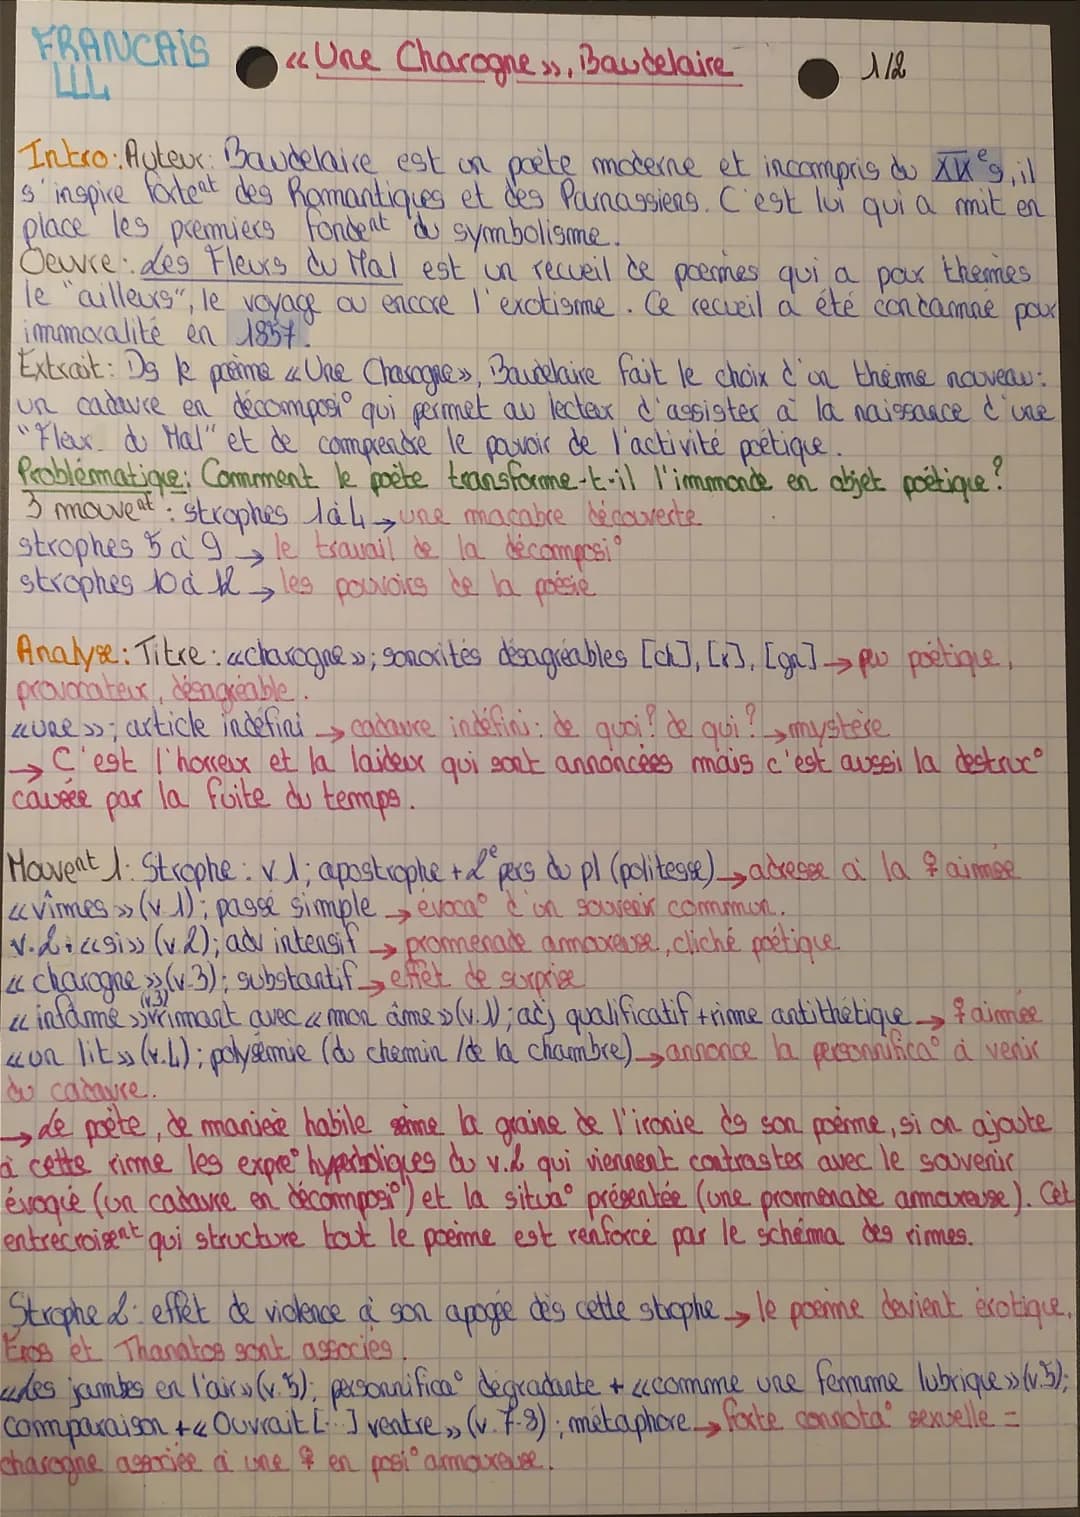 FRANCAIS
LLL
« Une Charogne », Baudelaire
1/2
Intro : Auteur : Baudelaire est un poète moderne et incompris du XIXe s, il
s'inspire fortent des Romantiques et des Parnassiens. C'est lui qui a mit en
place les premiers fondent du symbolisme.
Oeuvre : Les Fleurs du Mal est un recueil de poèmes qui a pour thèmes
le "ailleurs", le voyage ou encore l'exotisme. Ce recueil a été condamné pour
immoralité en 1857.
Extrait : Ds le poème « Une Charogne », Baudelaire fait le choix d'un thème nouveau :
un cadavre en décomposi° qui permet au lecteur d'assister à la naissance d'une
"Fleur du Mal" et de comprendre le pouvoir de l'activité poétique.
Problématique : Comment le poète transforme-t-il l'immonde en objet poétique ?
3 mouvent : strophes 1 à 4 → une macabre découverte
strophes 5 à 9 → le travail de la décomposi°
strophes 10 à 12 → les pouvoirs de la poésie
Analyse : Titre : « charogne » ; sonorités désagréables [ch], [r], [gn] → peu poétique,
provocateur, désagréable.
« une » ; article indéfini → cadavre indéfini : de quoi ? de qui ? → mystère
→ C'est l'horreur et la laideur qui sont annoncées mais c'est aussi la destruc°
causée par la fuite du temps.
Mouvent 1 : Strophe : v 1 ; apostrophe + 2e pers du pl (politesse) → adresse à la ♀ aimée
« vîmes » (v 1) ; passé simple → évoca° d'un souvenir commun.
v.2 : « si » (v.2) ; adv intensif → promenade amoureuse, cliché poétique
« charogne » (v.3) ; substantif → effet de surprise
« infâme » (v3) rimant avec « mon âme » (v.1) ; adj qualificatif + rime antithétique → ♀ aimée
« un lit » (v.4) ; polysémie (du chemin / de la chambre) → annonce la personnifica° à venir
du cadavre.
→ Le poète, de manière habile sème la graine de l'ironie ds son poème, si on ajoute
à cette rime les expre° hyperboliques du v.2 qui viennent contraster avec le souvenir
évoqué (un cadavre en décomposi°) et la situa° présentée (une promenade amoureuse). Cet
entrecroisent qui structure tout le poème est renforcé par le schéma des rimes.
Strophe 2 : effet de violence à son apogée dès cette strophe → le poème devient érotique,
Eros et Thanatos sont associés.
« Les jambes en l'air » (v.5) ; personnifica° dégradante + « comme une femme lubrique » (v.5) ;
comparaison + « Ouvrait [...] ventre » (v.7-8) ; métaphore → forte connota° sexuelle =
charogne associée à une ♀ en posi° amoureuse.